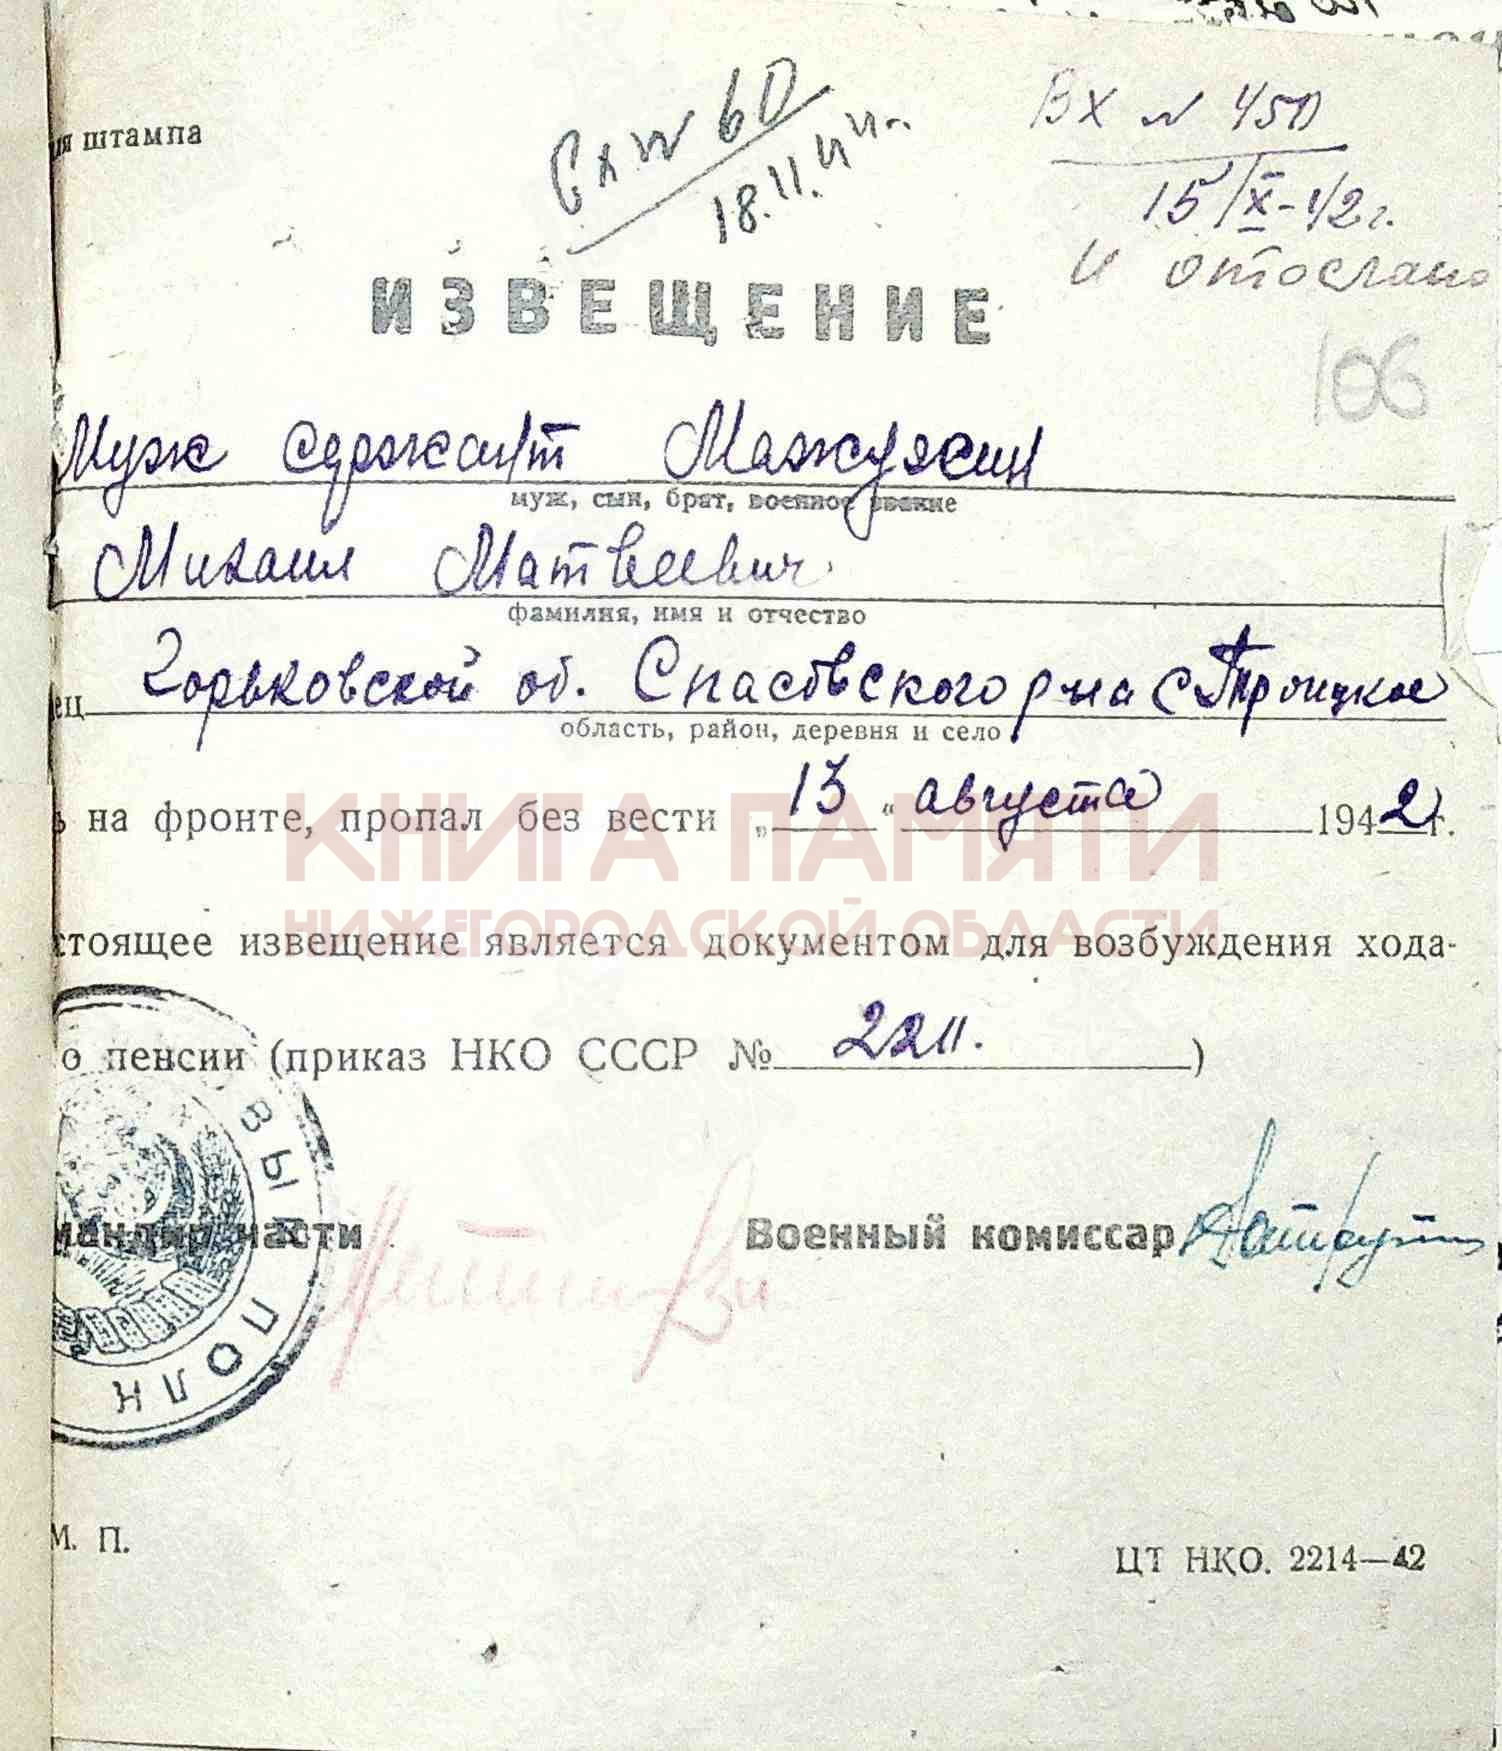 штампа
Сх № 60
18.11.44 г.
Вх № 450
15/X-42 г.
и отослано
ИЗВЕЩЕНИЕ
106
Муж сержант
муж, сын, брат, военное звание
Михаил Матвеевич
фамилия, имя и отчество
ец Горьковской об. Спасовского р-на с Троицкое
область, район, деревня и село
ь на фронте, пропал без вести „13“ августа 1942 г.
КНИГА ПАМЯТИ
НИЖЕГОРОДСКОЙ ОБЛАСТИ
стоящее извещение является документом для возбуждения хода-
о пенсии (приказ НКО СССР № 2211.)
мандир части Военный комиссар
ВЫЙ ПОЛК
М. П.
ЦТ НКО. 2214—42